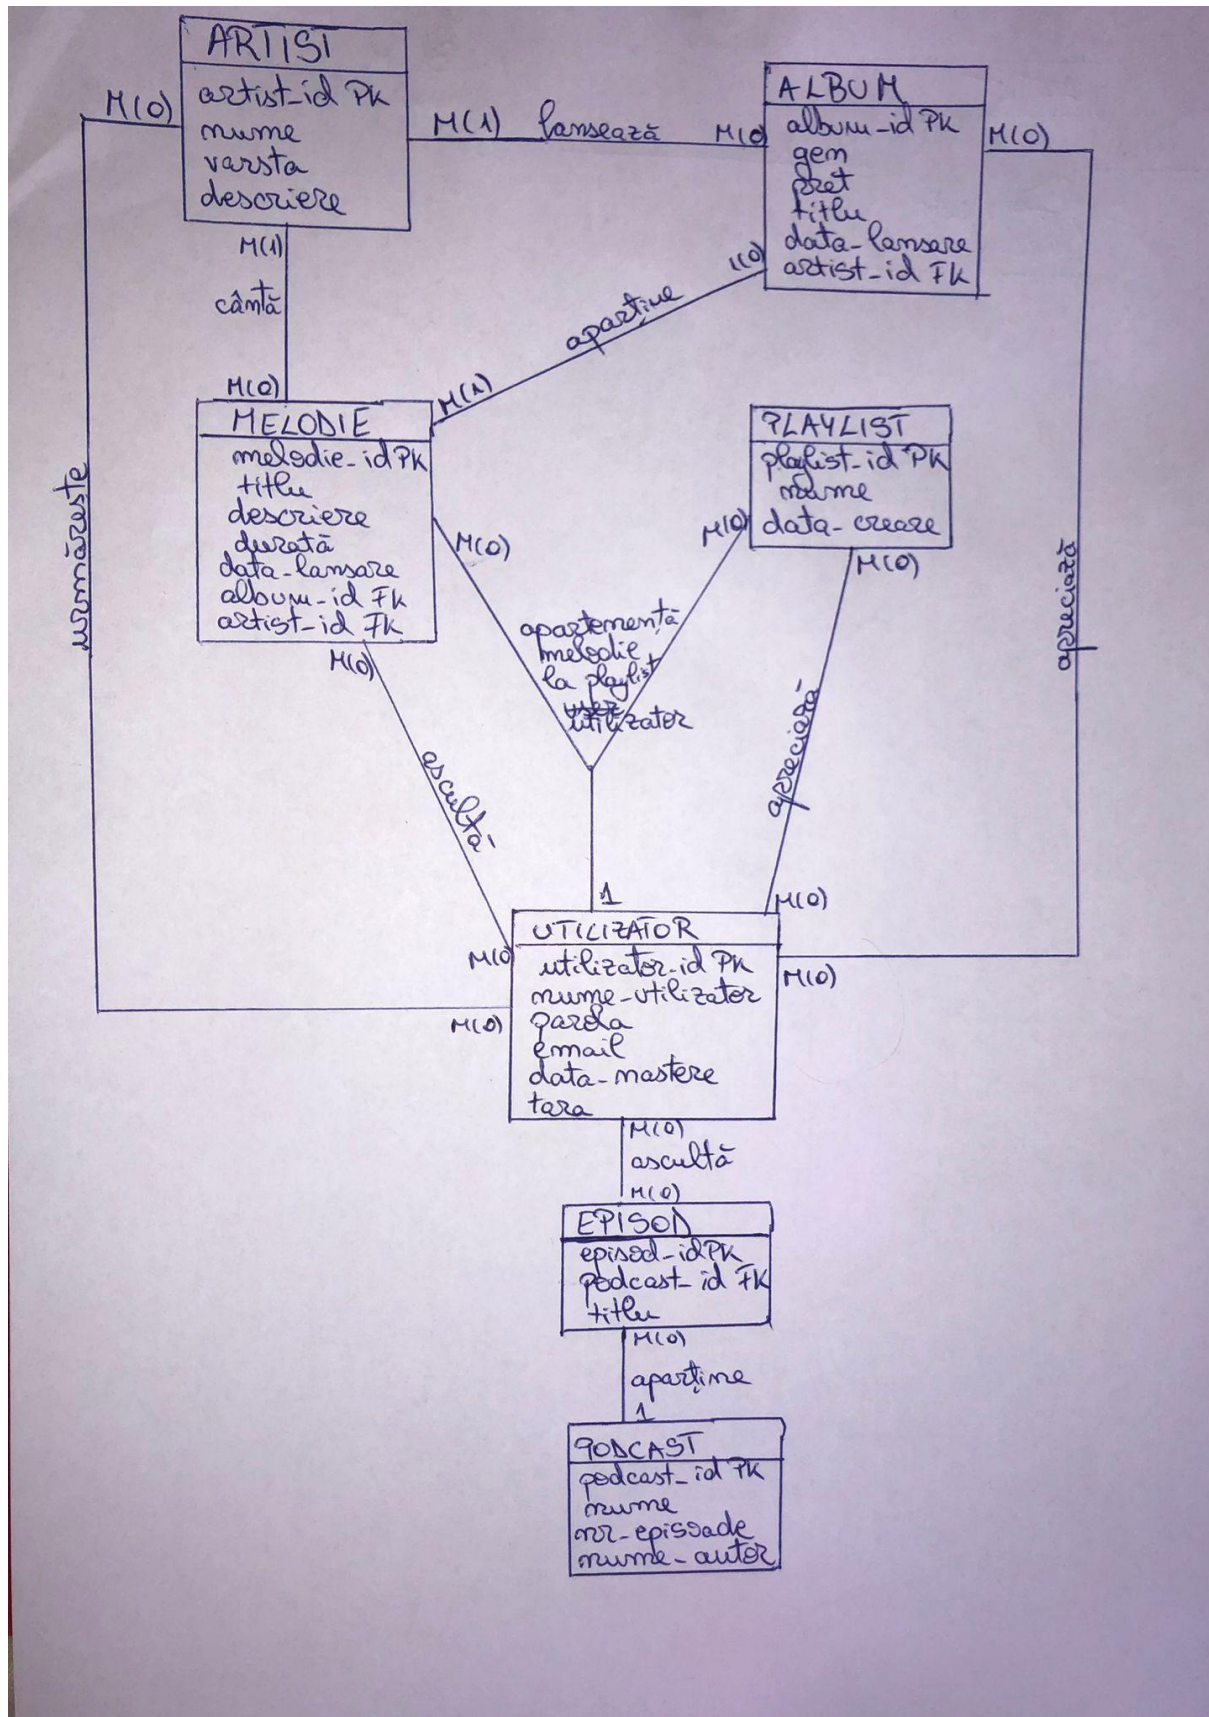 ARTIST
artist_id PK
nume
varsta
descriere
M(0)
M(1) lansează M(0)
ALBUM
album_id PK
gen
pret
titlu
data_lansare
artist_id FK
M(0)
M(1)
cântă
M(0)
1(0)
aparține
M(1)
MELODIE
melodie_id PK
titlu
descriere
durată
data_lansare
album_id FK
artist_id FK
PLAYLIST
playlist_id PK
nume
data_creare
urmărește
M(0)
M(0)
M(0)
M(0)
apartenență
melodie
la playlist
user
utilizator
apreciază
apreciază
ascultă
1
M(0)
M(0)
M(0)
M(0)
UTILIZATOR
utilizator_id PK
nume_utilizator
parola
email
data_nastere
tara
M(0)
ascultă
M(0)
EPISOD
episod_id PK
podcast_id FK
titlu
M(0)
aparține
1
PODCAST
podcast_id PK
nume
nr_episoade
nume_autor